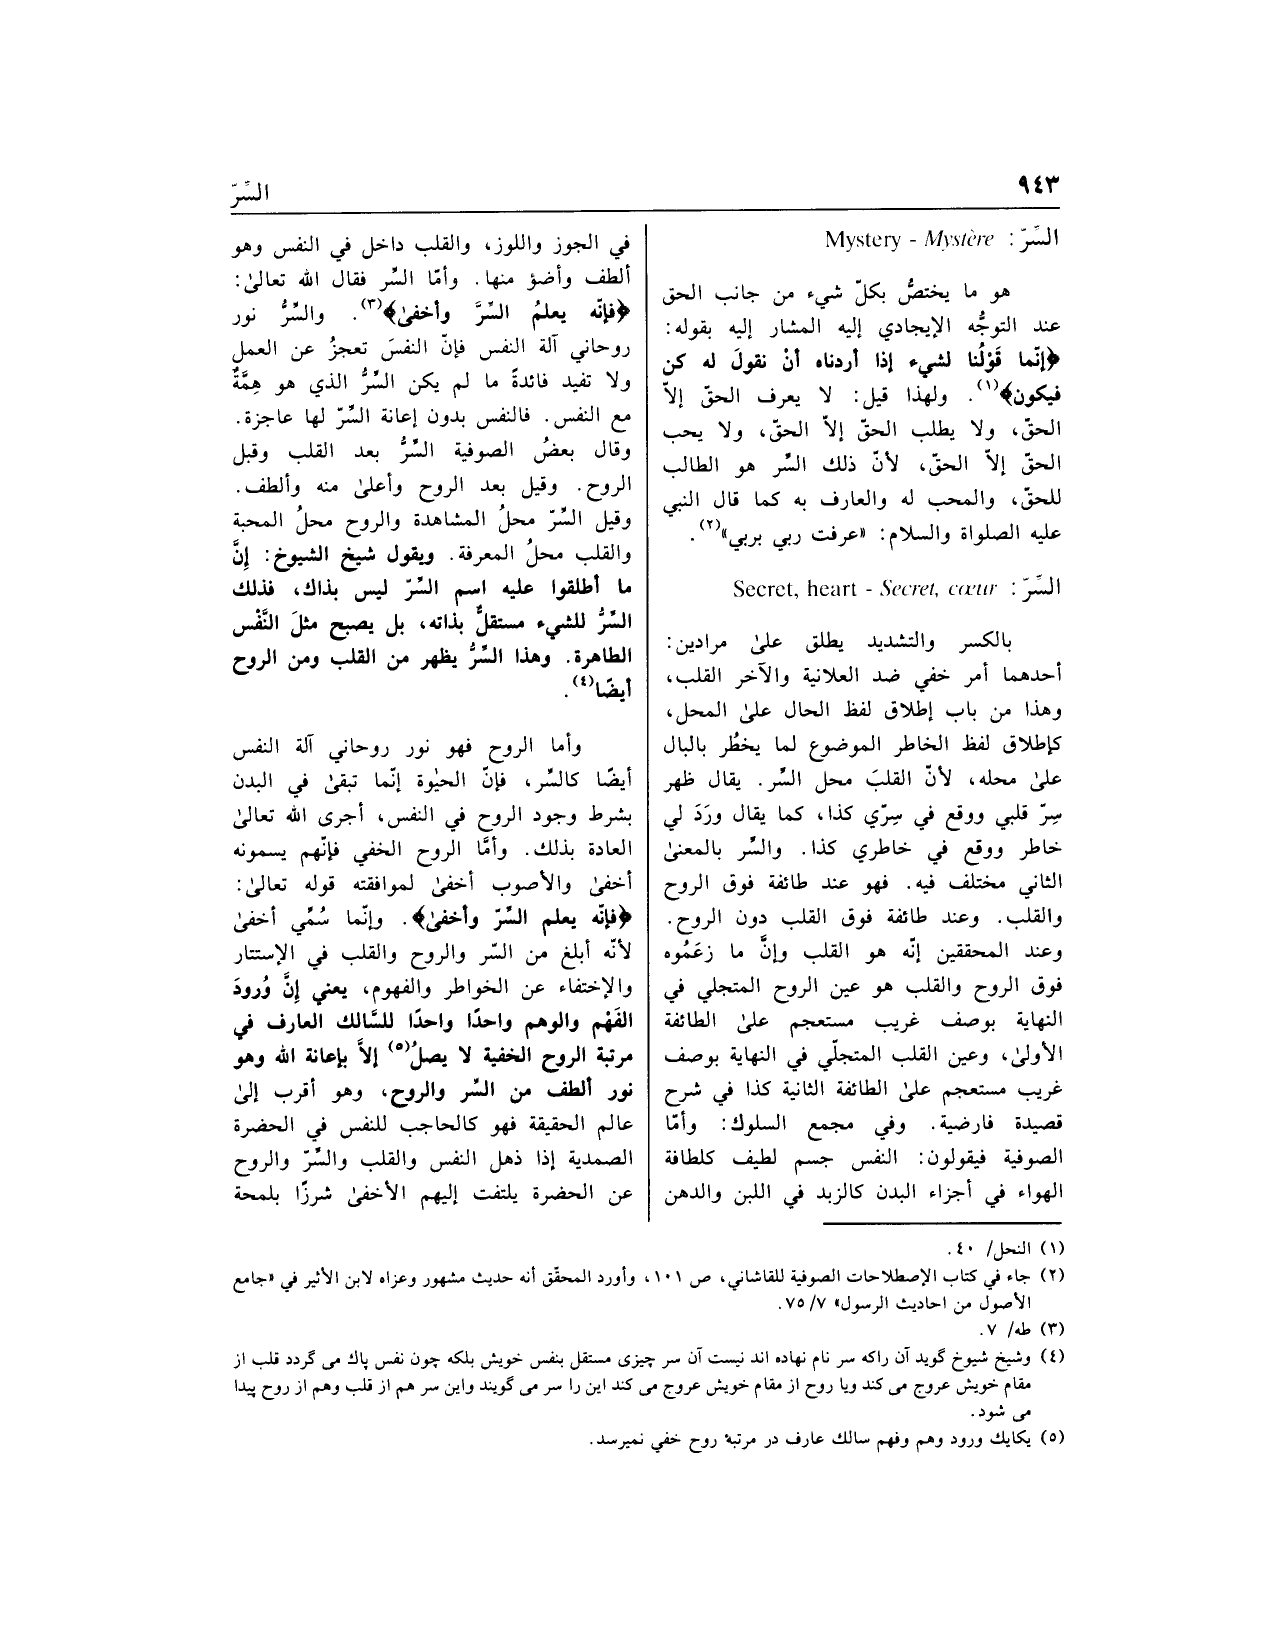 ٩٤٣
السِّرّ
السِّرّ: Mystery - Mystère
هو ما يختصُّ بكلّ شيء من جانب الحق
عند التوجُّه الإيجادي إليه المشار إليه بقوله:
﴿إنّما قَوْلُنا لشيء إذا أردناه أنْ نقولَ له كن
فيكون﴾(١). ولهذا قيل: لا يعرف الحقّ إلاّ
الحقّ، ولا يطلب الحقّ إلاّ الحقّ، ولا يحب
الحقّ إلاّ الحقّ، لأنّ ذلك السِّر هو الطالب
للحقّ، والمحب له والعارف به كما قال النبي
عليه الصلواة والسلام: «عرفت ربي بربي»(٢).
السِّرّ: Secret, heart - Secret, cœur
بالكسر والتشديد يطلق علىٰ مرادين:
أحدهما أمر خفي ضد العلانية والآخر القلب،
وهذا من باب إطلاق لفظ الحال علىٰ المحل،
كإطلاق لفظ الخاطر الموضوع لما يخطُر بالبال
علىٰ محله، لأنّ القلبَ محل السِّر. يقال ظهر
سِرّ قلبي ووقع في سِرّي كذا، كما يقال ورَدَ لي
خاطر ووقع في خاطري كذا. والسِّر بالمعنىٰ
الثاني مختلف فيه. فهو عند طائفة فوق الروح
والقلب. وعند طائفة فوق القلب دون الروح.
وعند المحققين إنّه هو القلب وإنَّ ما زعَمُوه
فوق الروح والقلب هو عين الروح المتجلي في
النهاية بوصف غريب مستعجم علىٰ الطائفة
الأولىٰ، وعين القلب المتجلّي في النهاية بوصف
غريب مستعجم علىٰ الطائفة الثانية كذا في شرح
قصيدة فارضية. وفي مجمع السلوك: وأمّا
الصوفية فيقولون: النفس جسم لطيف كلطافة
الهواء في أجزاء البدن كالزبد في اللبن والدهن
في الجوز واللوز، والقلب داخل في النفس وهو
ألطف وأضؤ منها. وأمّا السِّر فقال الله تعالىٰ:
﴿فإنّه يعلمُ السِّرَّ وأخفىٰ﴾(٣). والسِّرُّ نور
روحاني آلة النفس فإنّ النفسَ تعجزُ عن العمل
ولا تفيد فائدةً ما لم يكن السِّرُّ الذي هو هِمَّةٌ
مع النفس. فالنفس بدون إعانة السِّرّ لها عاجزة.
وقال بعضُ الصوفية السِّرُّ بعد القلب وقبل
الروح. وقيل بعد الروح وأعلىٰ منه وألطف.
وقيل السِّرّ محلُ المشاهدة والروح محلُ المحبة
والقلب محلُ المعرفة. ويقول شيخ الشيوخ: إنَّ
ما أطلقوا عليه اسم السِّرّ ليس بذاك، فذلك
السِّرُّ للشيء مستقلٌّ بذاته، بل يصبح مثلَ النَّفْس
الطاهرة. وهذا السِّرُّ يظهر من القلب ومن الروح
أيضًا(٤).
وأما الروح فهو نور روحاني آلة النفس
أيضًا كالسِّر، فإنّ الحيٰوة إنّما تبقىٰ في البدن
بشرط وجود الروح في النفس، أجرى الله تعالىٰ
العادة بذلك. وأمَّا الروح الخفي فإنّهم يسمونه
أخفىٰ والأصوب أخفىٰ لموافقته قوله تعالىٰ:
﴿فإنّه يعلم السِّرّ وأخفىٰ﴾. وإنّما سُمِّي أخفىٰ
لأنّه أبلغ من السِّر والروح والقلب في الإستتار
والإختفاء عن الخواطر والفهوم، يعني إنَّ وُرودَ
الفَهْم والوهم واحدًا واحدًا للسَّالك العارف في
مرتبة الروح الخفية لا يصلُ(٥) إلاَّ بإعانة الله وهو
نور ألطف من السِّر والروح، وهو أقرب إلىٰ
عالم الحقيقة فهو كالحاجب للنفس في الحضرة
الصمدية إذا ذهل النفس والقلب والسِّرّ والروح
عن الحضرة يلتفت إليهم الأخفىٰ شررًا بلمحة
(١) النحل/ ٤٠.
(٢) جاء في كتاب الإصطلاحات الصوفية للقاشاني، ص ١٠١، وأورد المحقّق أنه حديث مشهور وعزاه لابن الأثير في «جامع
الأصول من احاديث الرسول» ٧/ ٧٥.
(٣) طه/ ٧.
(٤) وشيخ شيوخ گويد آن راكه سر نام نهاده اند نيست آن سر چيزى مستقل بنفس خويش بلكه چون نفس پاك مى گردد قلب از
مقام خويش عروج مى كند ويا روح از مقام خويش عروج مى كند اين را سر مى گويند واين سر هم از قلب وهم از روح پيدا
مى شود.
(٥) يكايك ورود وهم وفهم سالك عارف در مرتبهٔ روح خفي نميرسد.